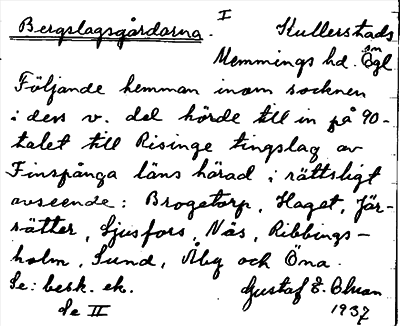 I
Bergslagsgårdarna. Kullerstads
sn
Memmings hd. Ögl
Följande hemman inom socknen
i dess v. del hörde till in på 90-
talet till Risinge tingslag av
Finspånga läns härad i rättsligt
avseende: Brogetorp, Haget, Jär-
sätter, Ljusfors, Näs, Ribbings-
holm, Sund, Åby och Öna.
Se: besk. ek. Gustaf E. Olsson
Se II 1937